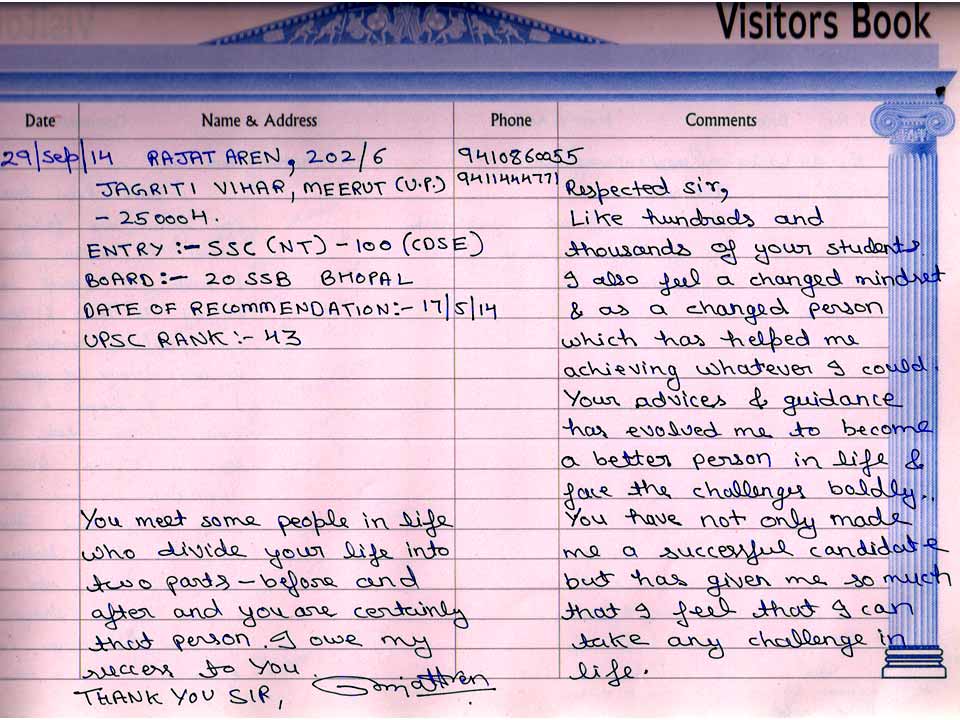 Visitors Book
Date Name & Address Phone Comments
29/Sep/14 RAJAT AREN, 202/6 9410860055
JAGRITI VIHAR, MEERUT (U.P.) 9411444771
- 250004.
ENTRY :- SSC (NT) - 100 (CDSE)
BOARD :- 20 SSB BHOPAL
DATE OF RECOMMENDATION :- 17/5/14
UPSC RANK :- 43
You meet some people in life
who divide your life into
two parts - before and
after and you are certainly
that person. I owe my
success to You.
THANK YOU SIR,
Respected sir,
Like hundreds and
thousands of your students.
I also feel a changed mindset
& as a changed person
which has helped me
achieving whatever I could.
Your advices & guidance
has evolved me to become
a better person in life &
face the challenges boldly..
You have not only made
me a successful candidate
but has given me so much
that I feel that I can
take any challenge in
life.